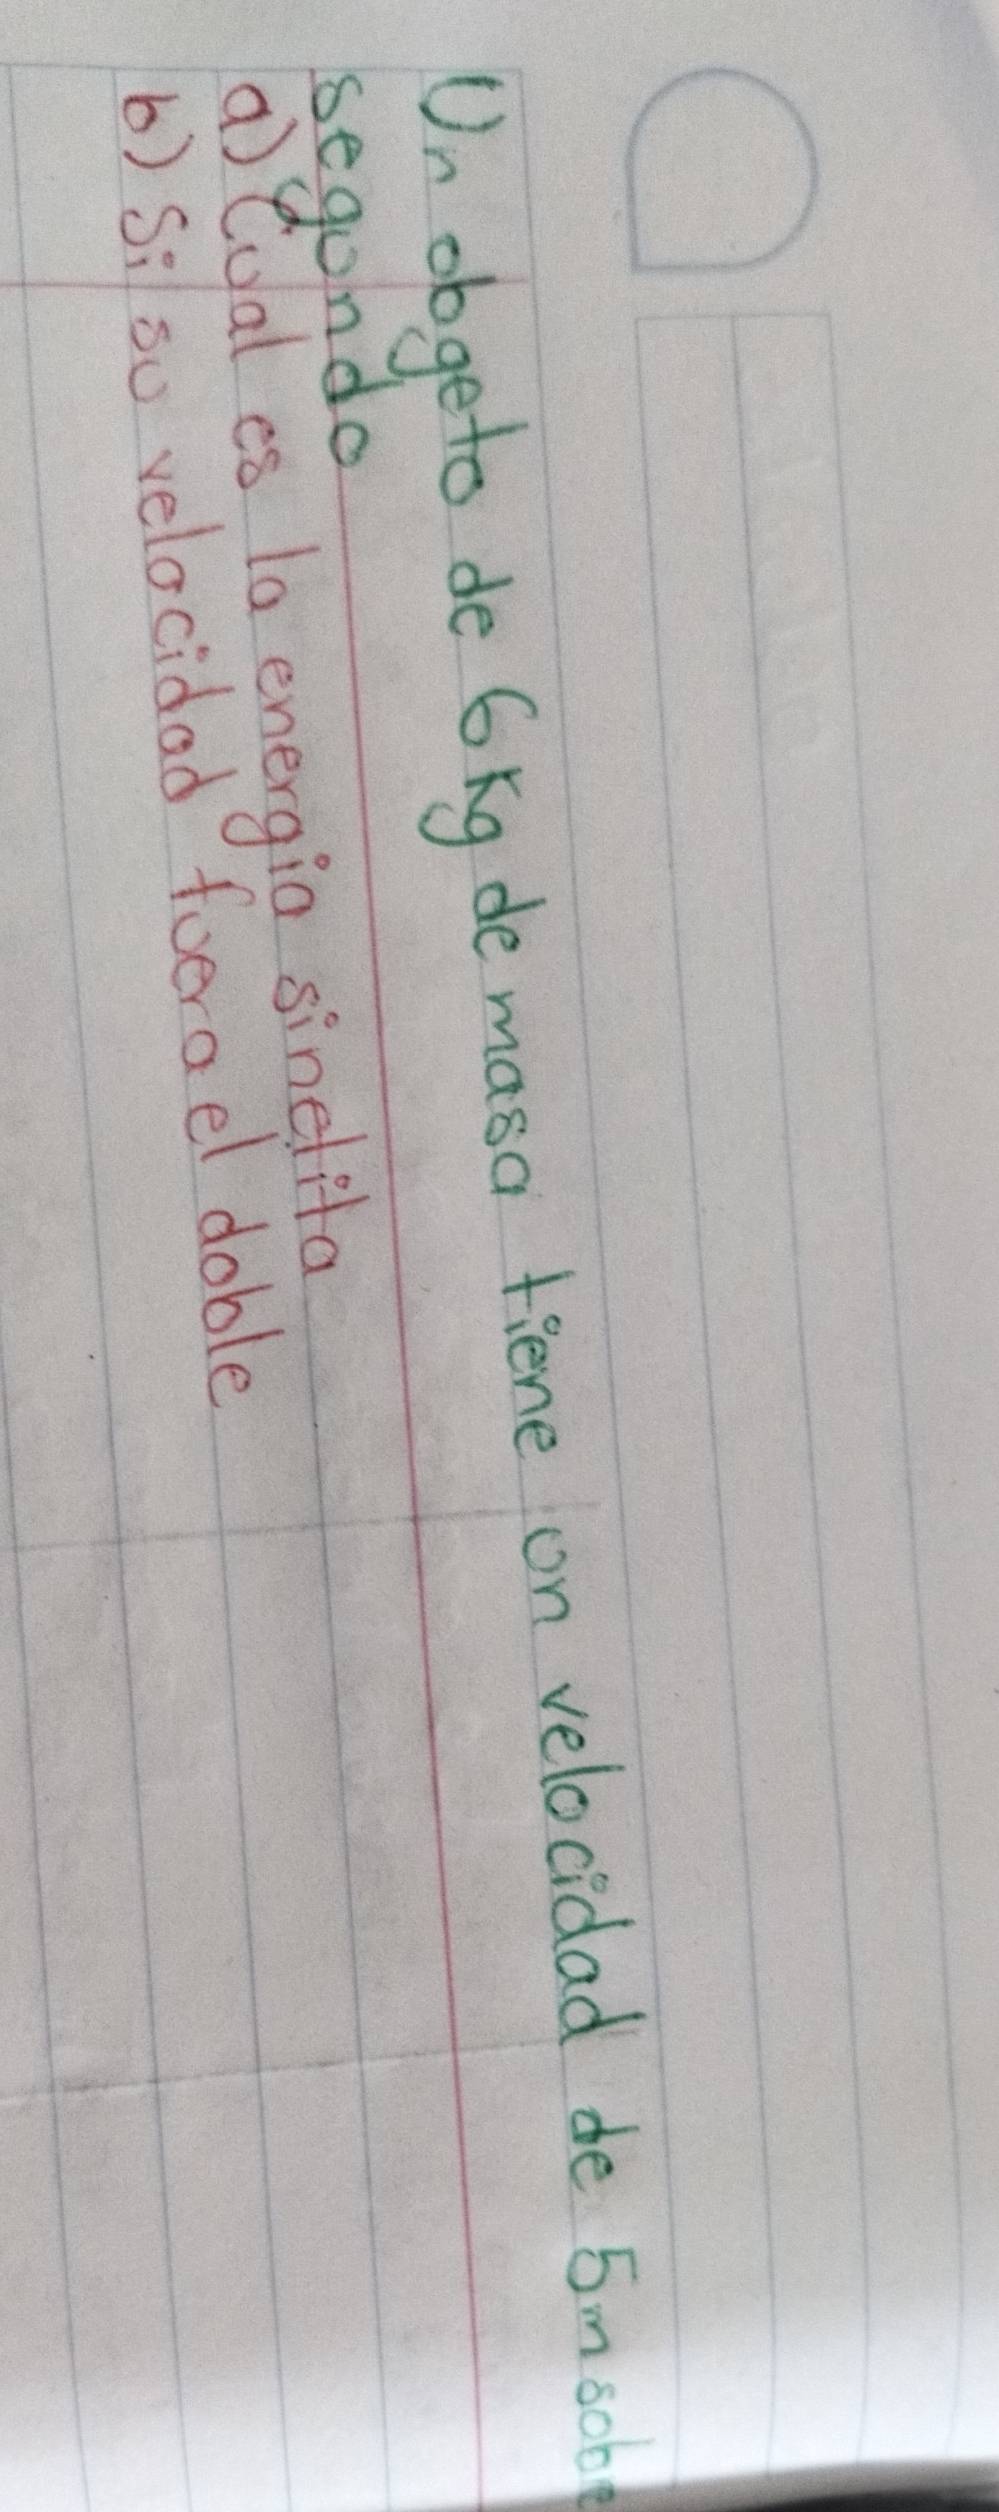 Un obgeto de 6 Kg de masa tiene un velocidad de 5m sobre
segundo
a) Cual es la energia sinelita
b) Si su velocidad fuera el doble